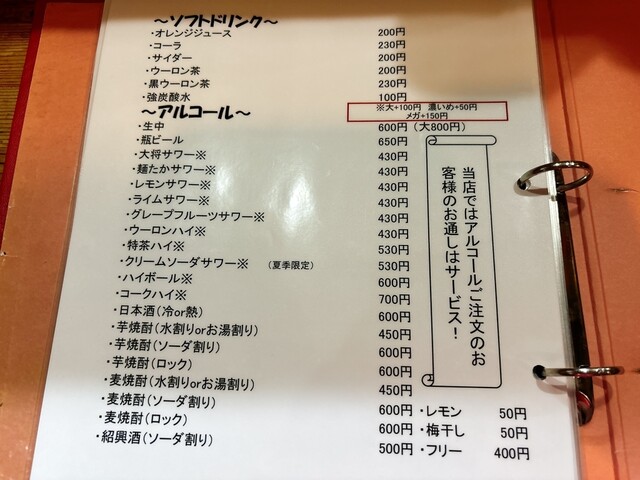 ～ソフトドリンク～
・オレンジジュース 200円
・コーラ 230円
・サイダー 200円
・ウーロン茶 200円
・黒ウーロン茶 230円
・強炭酸水 100円
～アルコール～
※大+100円 濃いめ+50円
メガ+150円
・生中 600円（大800円）
・瓶ビール 650円
・大将サワー※ 430円
・麺たかサワー※ 430円
・レモンサワー※ 430円
・ライムサワー※ 430円
・グレープフルーツサワー※ 430円
・ウーロンハイ※ 430円
・特茶ハイ※ 530円
・クリームソーダサワー※ （夏季限定） 530円
・ハイボール※ 600円
・コークハイ※ 700円
・日本酒（冷or熱） 600円
・芋焼酎（水割りorお湯割り） 450円
・芋焼酎（ソーダ割り） 600円
・芋焼酎（ロック） 600円
・麦焼酎（水割りorお湯割り） 450円
・麦焼酎（ソーダ割り） 600円
・麦焼酎（ロック） 600円
・紹興酒（ソーダ割り） 500円
当店ではアルコールご注文のお
客様のお通しはサービス！
・レモン 50円
・梅干し 50円
・フリー 400円